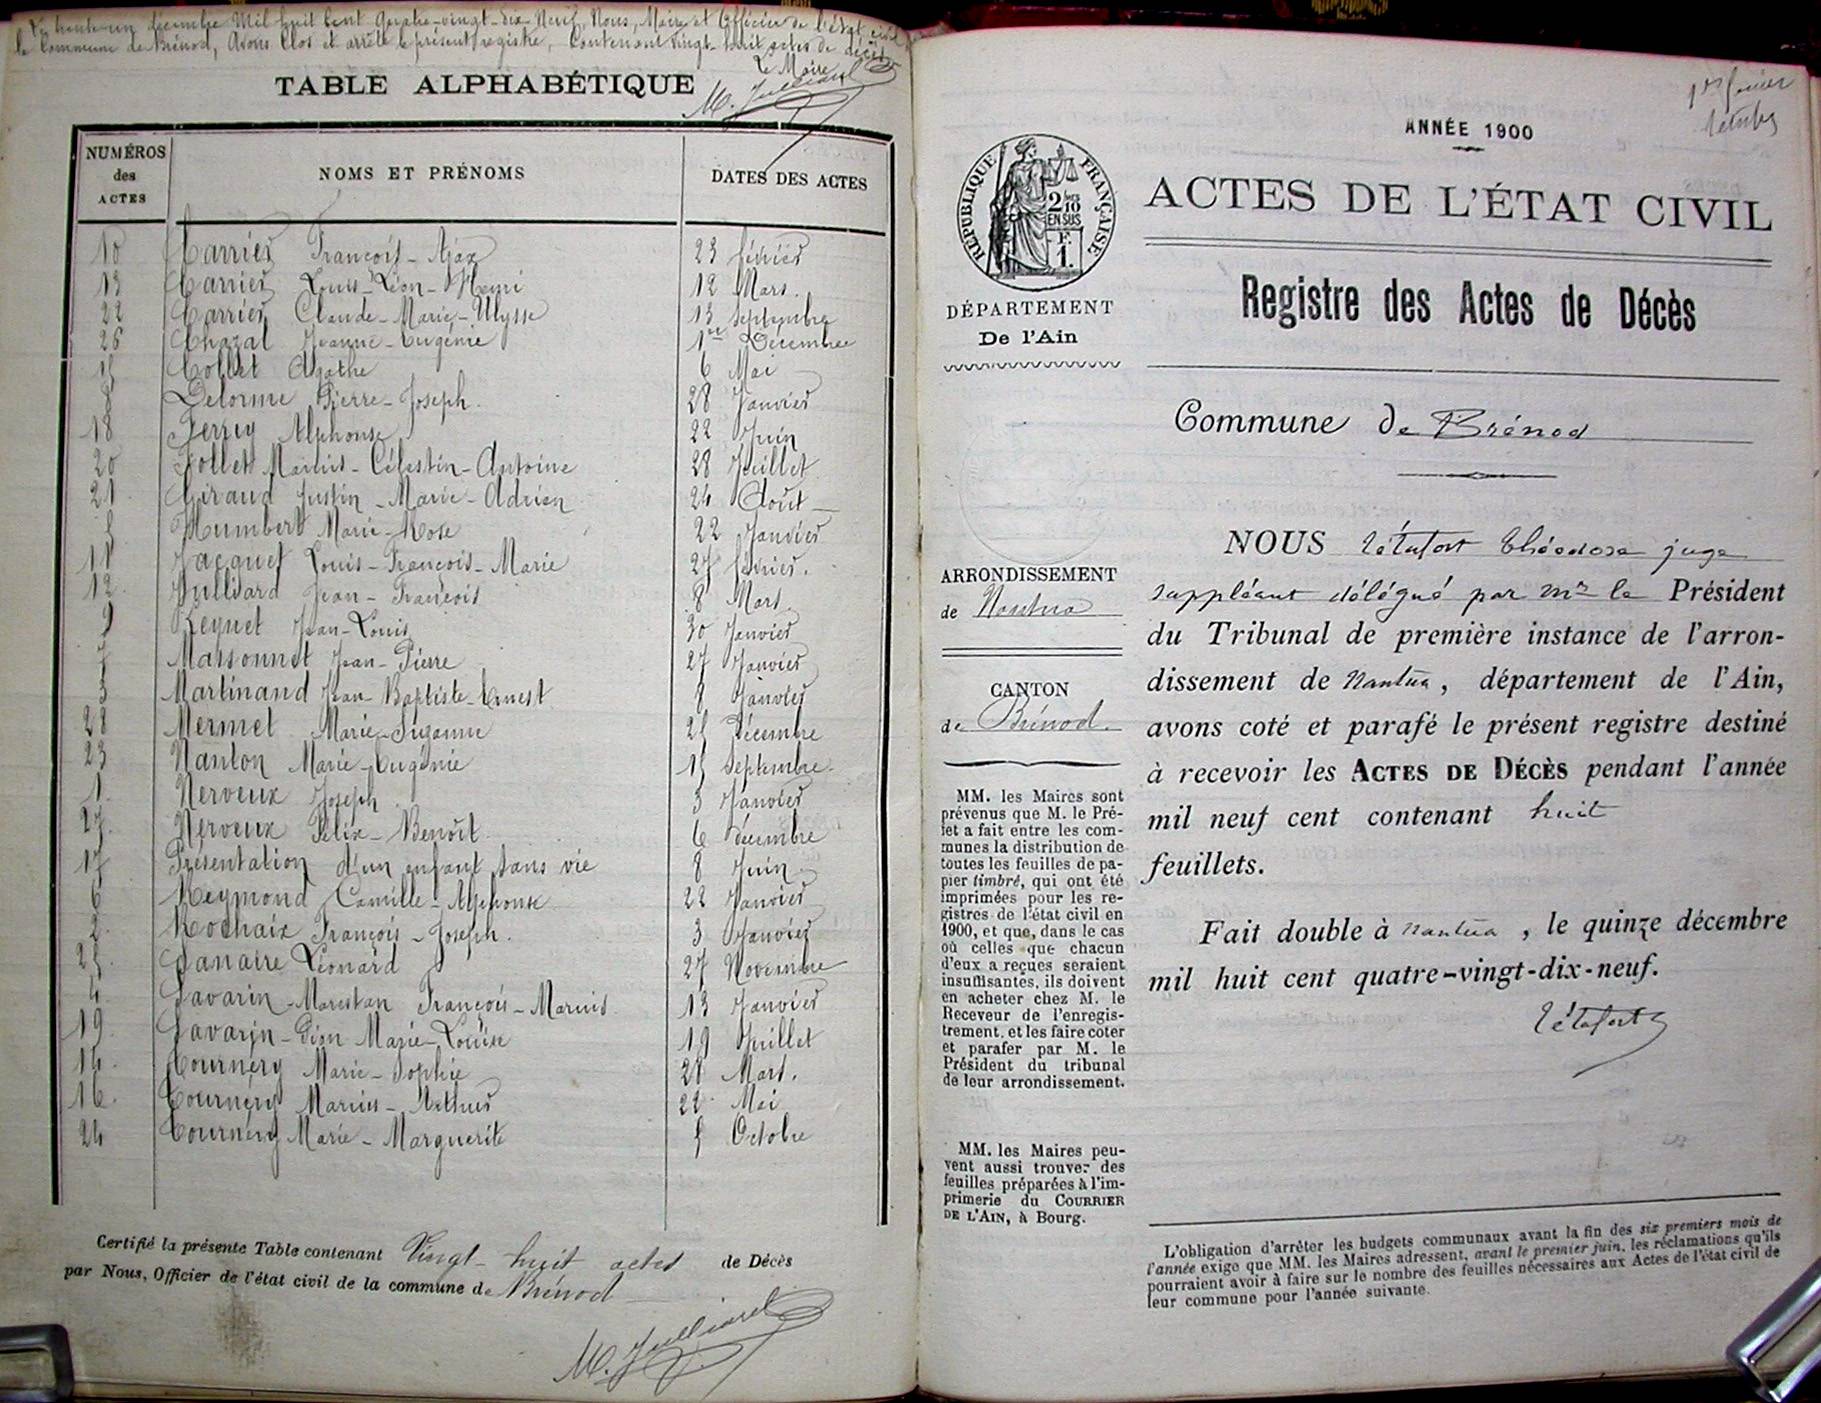 Le trente-un décembre Mil huit Cent Quatre-vingt-dix-Neuf, Nous, Maire et Officier de l'état civil de
la Commune de Brénod, Avons Clos et arrêté le présent registre, Contenant vingt-huit actes de décès
Le Maire
M. Julliard
TABLE ALPHABÉTIQUE
NUMÉROS des ACTES NOMS ET PRÉNOMS DATES DES ACTES
10 Carrier François-Ajax 23 février
13 Carrier Louis-Léon-Henri 12 Mars.
22 Carrier Claude-Marie-Ulysse 13 Septembre
26 Chazal Jeanne-Eugénie 1er Décembre
15 Collet Agathe 6 Mai
8 Delorme Pierre-Joseph. 28 Janvier
18 Ferry Alphonse 22 Juin
20 Follet Marius-Célestin-Antoine 28 Juillet
21 Giraud Justin-Marie-Adrien 24 Août
5 Humbert Marie-Rose 22 Janvier
11 Jacquet Louis-François-Marie 27 février.
12 Julliard Jean-François 8 Mars
9 Jean-Louis 30 Janvier
7 Massonnet Jean-Pierre 27 Janvier
3 Martinand Jean-Baptiste-Ernest 8 Janvier
28 Mermet Marie-Suzanne 25 Décembre
23 Nanton Marie-Eugénie 15 Septembre
1 Nerveux Joseph 3 Janvier
27 Nerveux Félix-Benoît 6 décembre
17 Présentation d'un enfant sans vie 8 Juin
6 Reymond Camille-Alphonse 22 Janvier
2 Rochaix François-Joseph. 3 Janvier
25 Léonard 27 Novembre
4 Savarin-Marestan François-Marius 13 Janvier
19 Savarin-Dion Marie-Louise 19 Juillet
14 Tournéry Marie-Sophie 28 Mars.
16 Tournéry Marius-Arthur 22 Mai
24 Tournéry Marie-Marguerite 5 Octobre
Certifié la présente Table contenant Vingt-huit actes de Décès
par Nous, Officier de l'état civil de la commune de Brénod
M. Julliard
1er feuillet
Rétafort
ANNÉE 1900
RÉPUBLIQUE FRANÇAISE
2/10 EN SUS
F. 1.
DÉPARTEMENT
De l'Ain
ARRONDISSEMENT
de Nantua
CANTON
de Brénod.
MM. les Maires sont
prévenus que M. le Pré-
fet a fait entre les com-
munes la distribution de
toutes les feuilles de pa-
pier timbré, qui ont été
imprimées pour les re-
gistres de l'état civil en
1900, et que, dans le cas
où celles que chacun
d'eux a reçues seraient
insuffisantes, ils doivent
en acheter chez M. le
Receveur de l'enregis-
trement, et les faire coter
et parafer par M. le
Président du tribunal
de leur arrondissement.
MM. les Maires peu-
vent aussi trouver des
feuilles préparées à l'im-
primerie du COURRIER
DE L'AIN, à Bourg.
ACTES DE L'ÉTAT CIVIL
Registre des Actes de Décès
Commune de Brénod
NOUS Rétafort Théodore juge
suppléant délégué par Mr le Président
du Tribunal de première instance de l'arron-
dissement de Nantua, département de l'Ain,
avons coté et parafé le présent registre destiné
à recevoir les ACTES DE DÉCÈS pendant l'année
mil neuf cent contenant huit
feuillets.
Fait double à Nantua, le quinze décembre
mil huit cent quatre-vingt-dix-neuf.
Rétafort
L'obligation d'arrêter les budgets communaux avant la fin des six premiers mois de
l'année exige que MM. les Maires adressent, avant le premier juin, les réclamations qu'ils
pourraient avoir à faire sur le nombre des feuilles nécessaires aux Actes de l'état civil de
leur commune pour l'année suivante.